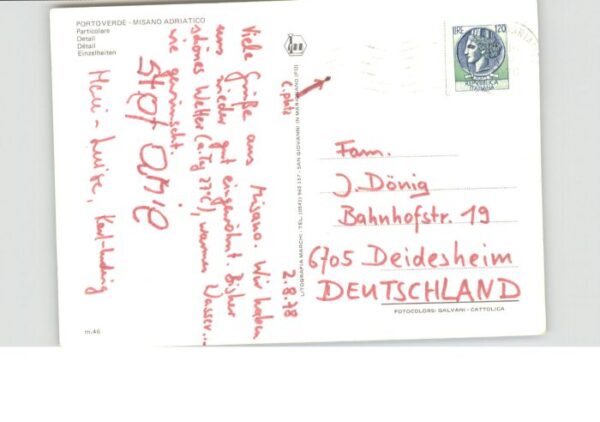 PORTOVERDE - MISANO ADRIATICO
Particolare
Detail
Détail
Einzelheiten
2.8.78
Viele Grüße aus Misano. Wir haben
uns wieder gut eingewöhnt. Bisher
schönes Wetter (a. Tag 27°C), warmes Wasser...
wie gewünscht.
Karl-Ludwig
m.46
LITOGRAFIA MARCHI - TEL. (0541) - SAN GIOVANNI IN MARIGNANO (FO)
LIRE 120
REPUBBLICA
ITALIANA
Fam.
J. Dönig
Bahnhofstr. 19
6705 Deidesheim
DEUTSCHLAND
FOTOCOLORS: GALVANI - CATTOLICA